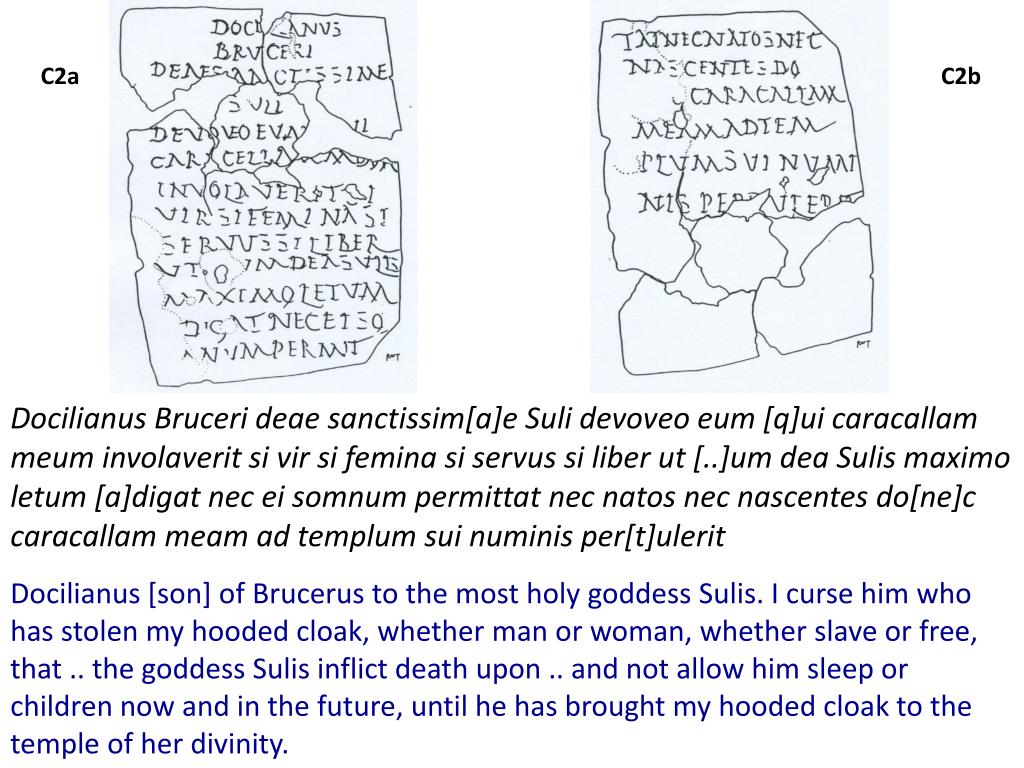 C2a
DOCI LANVS
BRVCERI
DEAESANCTISSIME
SVLI
DEVOVEOEVM
INVOLAVERITSI
VIRSIFEMINASI
SERVVSSILIBER
VMDEASVLIS
MAXIMOLETVM
DIGATNECEISO
ANVMPERMIT
RMT
C2b
TATNECNATOSNEC
NASCENTESDO
CARACALLAM
MEAMADTEM
PLVMSVINVMI
NIS
RMT
Docilianus Bruceri deae sanctissim[a]e Suli devoveo eum [q]ui caracallam
meum involaverit si vir si femina si servus si liber ut [..]um dea Sulis maximo
letum [a]digat nec ei somnum permittat nec natos nec nascentes do[ne]c
caracallam meam ad templum sui numinis per[t]ulerit
Docilianus [son] of Brucerus to the most holy goddess Sulis. I curse him who
has stolen my hooded cloak, whether man or woman, whether slave or free,
that .. the goddess Sulis inflict death upon .. and not allow him sleep or
children now and in the future, until he has brought my hooded cloak to the
temple of her divinity.